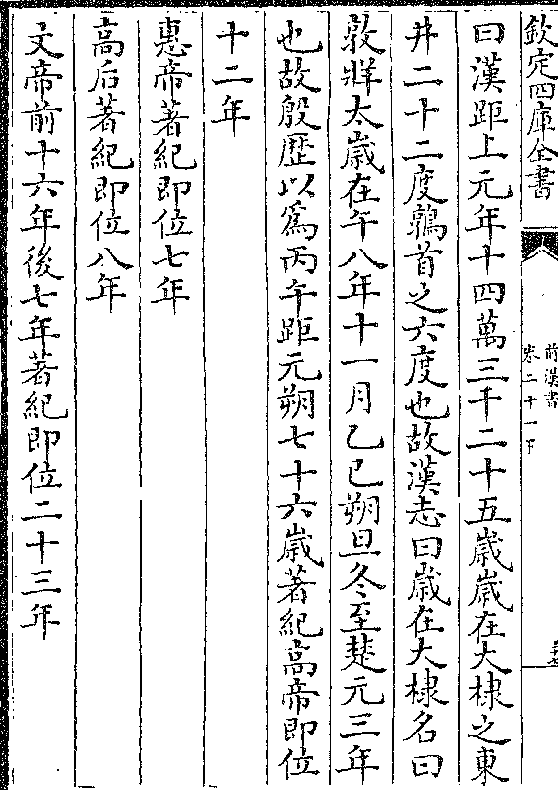 欽定四庫全書
前漢書
卷二十一下
曰漢距上元年十四萬三千二十五歲歲在大棣之東
井二十二度鶉首之六度也故漢志曰歲在大棣名曰
敦牂太歲在午八年十一月乙巳朔旦冬至楚元三年
也故殷歷以為丙午距元朔七十六歲著紀高帝即位
十二年
惠帝著紀即位七年
高后著紀即位八年
文帝前十六年後七年著紀即位二十三年